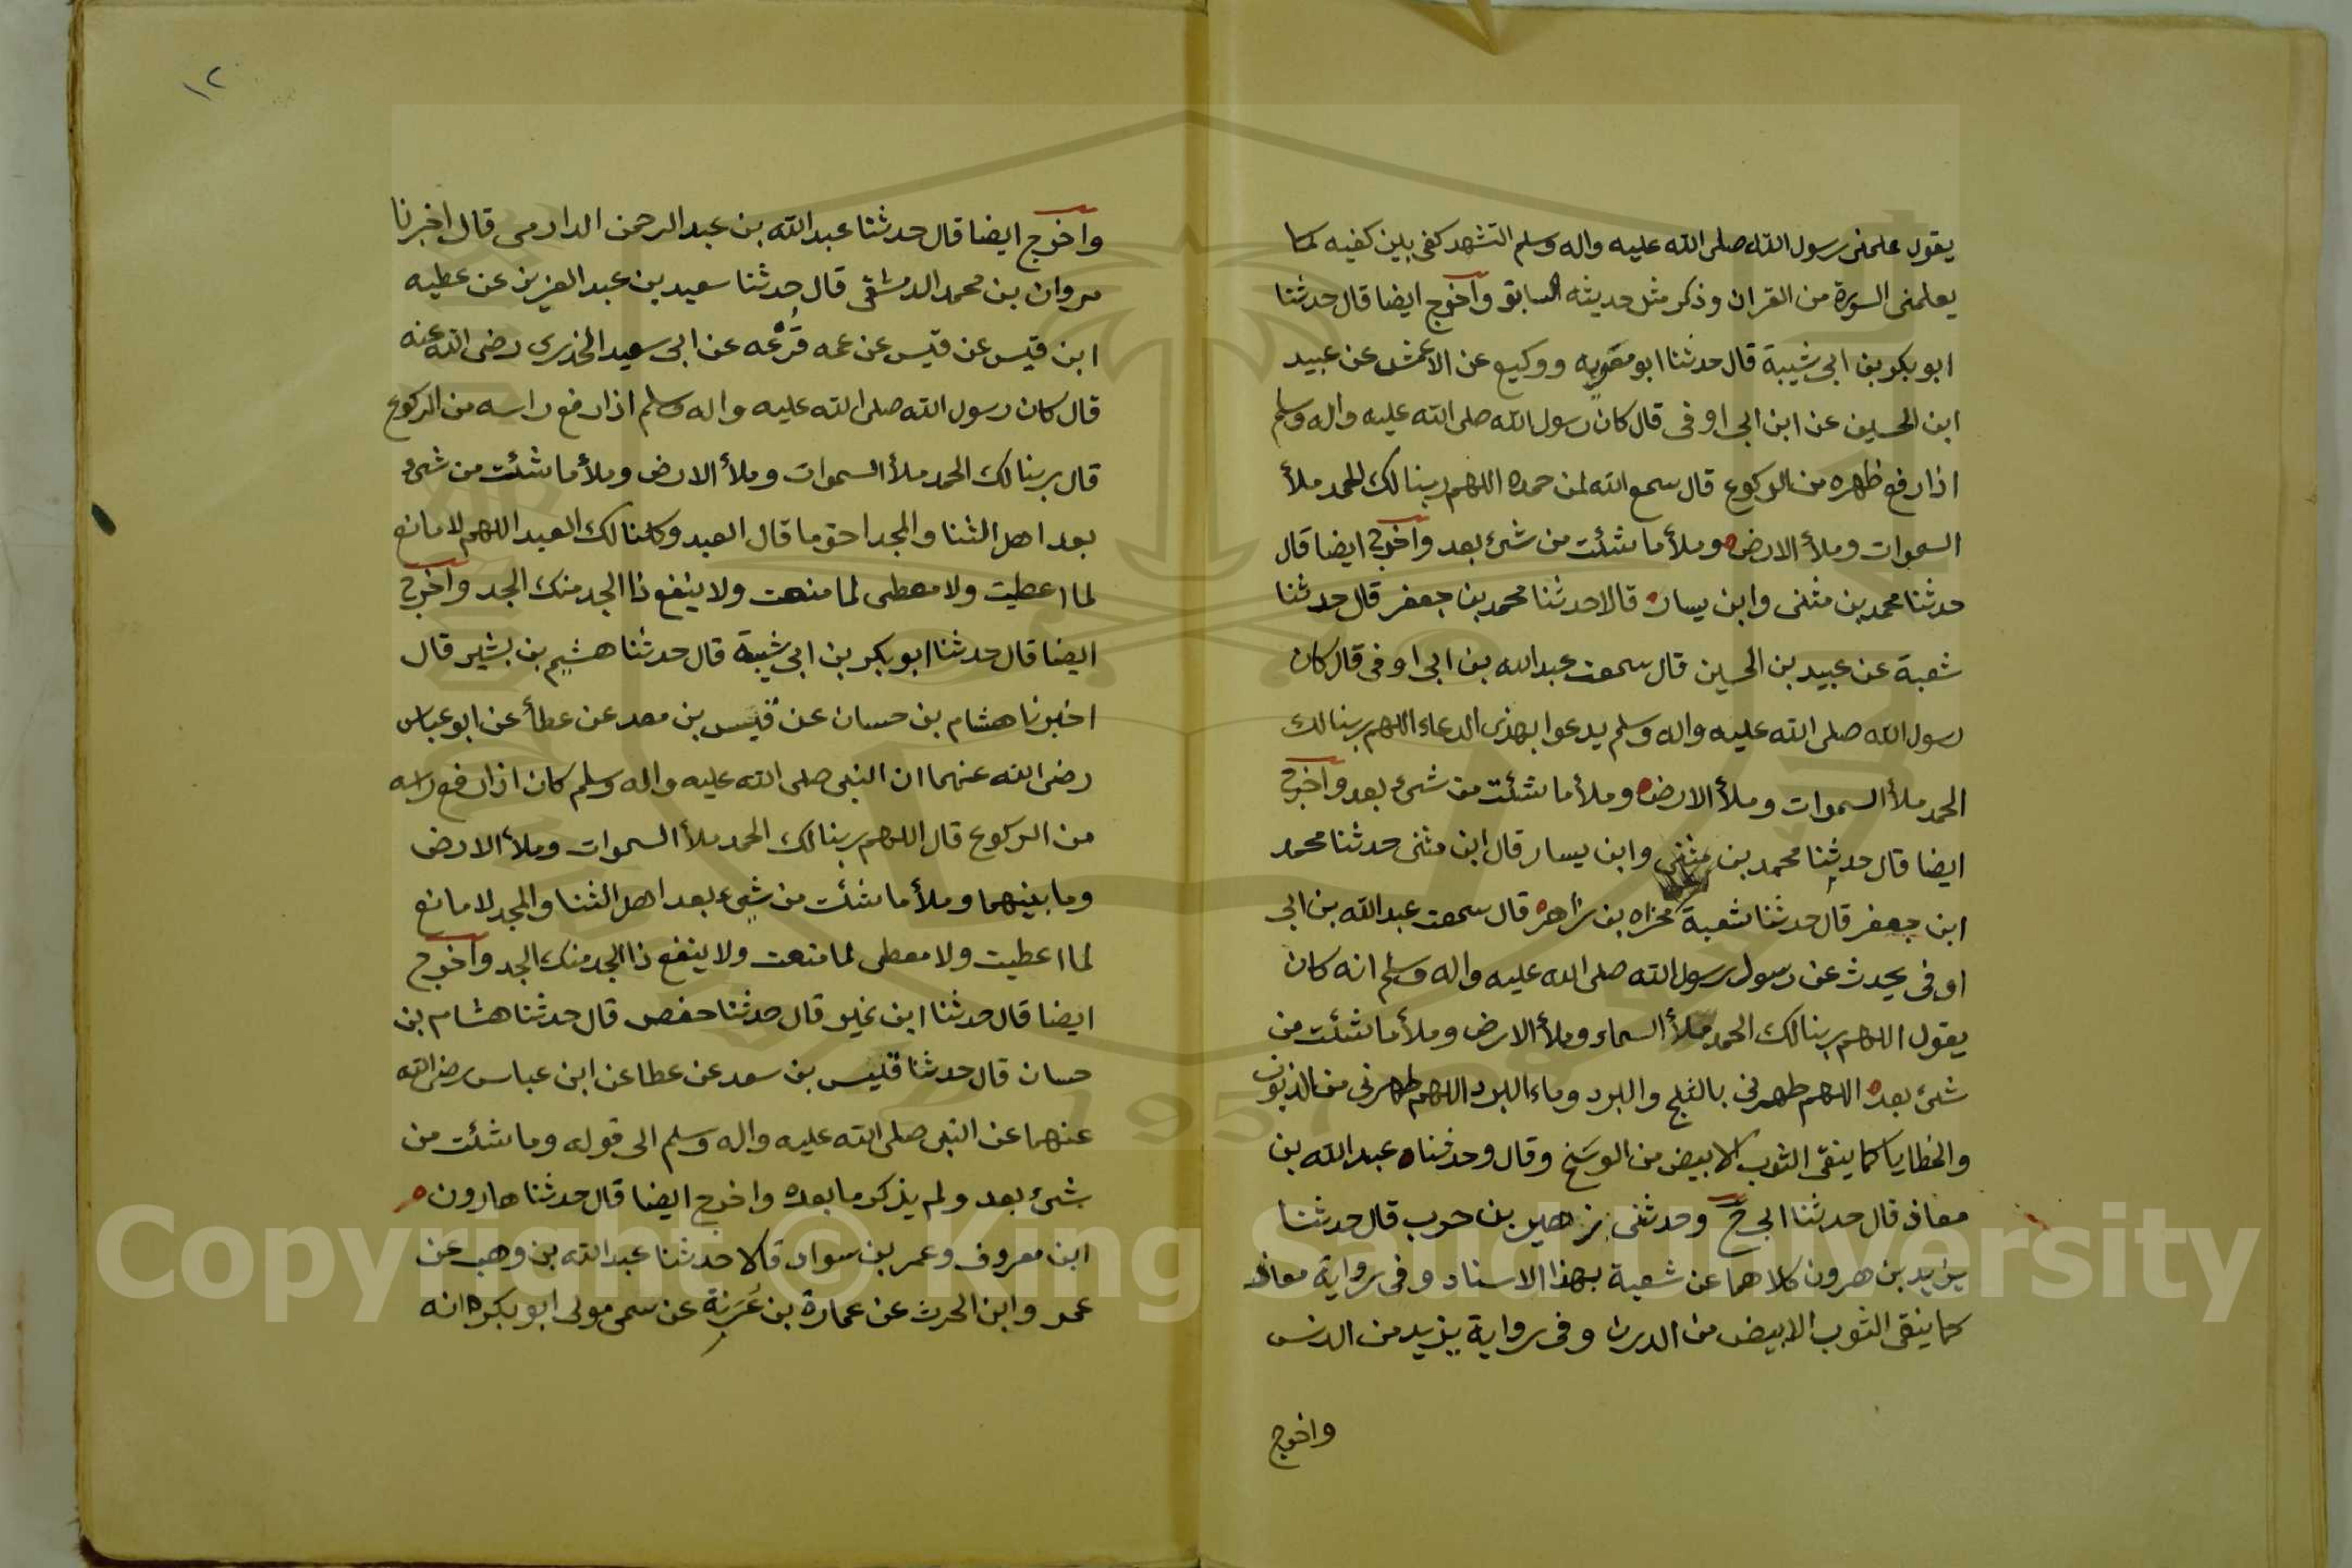 يقول علمني رسول الله صلى الله عليه واله وسلم التشهد كفي بين كفيه كما
يعلمني السورة من القران وذكر مثل حديثه السابق واخرج ايضا قال حدثنا
ابو بكر بن ابي شيبة قال حدثنا ابو معويه ووكيع عن الاعمش عن عبيد
ابن الحسين عن ابن ابي اوفى قال كان رسول الله صلى الله عليه واله وسلم
اذا رفع ظهره من الركوع قال سمع الله لمن حمده اللهم ربنا لك الحمد ملأ
السموات وملأ الارض وملأ ما شئت من شئ بعد واخرج ايضا قال
حدثنا محمد بن مثنى وابن يسار قالا حدثنا محمد بن جعفر قال حدثنا
شعبة عن عبيد بن الحسين قال سمعت عبد الله بن ابي اوفى قال كان
رسول الله صلى الله عليه واله وسلم يدعوا بهذى الدعاء اللهم ربنا لك
الحمد ملأ السموات وملأ الارض وملأ ما شئت من شئ بعد واخرج
ايضا قال حدثنا محمد بن مثنى وابن يسار قال ابن مثنى حدثنا محمد
ابن جعفر قال حدثنا شعبة مجزاه بن زاهر قال سمعت عبد الله بن ابي
اوفى يحدث عن رسول رسول الله صلى الله عليه واله وسلم انه كان
يقول اللهم ربنا لك الحمد ملأ السماء وملأ الارض وملأ ما شئت من
شئ بعد اللهم طهرني بالثلج والبرد وماء البرد اللهم طهرني من الذنوب
والخطايا كما ينقى الثوب الابيض من الوسخ وقال وحدثناه عبد الله بن
معاذ قال حدثنا ابي ح وحدثني زهير بن حرب قال حدثنا
يزيد بن هرون كلاهما عن شعبة بهذا الاسناد وفي رواية معاذ
كما ينقى الثوب الابيض من الدرن وفي رواية يزيد من الدنس
واخرج
١٢
واخرج ايضا قال حدثنا عبد الله بن عبد الرحمن الدارمي قال اخبرنا
مروان بن محمد الدمشقي قال حدثنا سعيد بن عبد العزيز عن عطيه
ابن قيس عن قيس عن عمه قزعه عن ابي سعيد الخدري رضى الله عنه
قال كان رسول الله صلى الله عليه واله وسلم اذا رفع راسه من الركوع
قال ربنا لك الحمد ملأ السموات وملأ الارض وملأ ما شئت من شئ
بعد اهل الثنا والمجد احق ما قال العبد وكلنا لك العبد اللهم لا مانع
لما اعطيت ولا معطى لما منعت ولا ينفع ذا الجد منك الجد واخرج
ايضا قال حدثنا ابو بكر بن ابي شيبة قال حدثنا هشيم بن بشير قال
اخبرنا هشام بن حسان عن قيس بن معد عن عطأ عن ابو عباس
رضى الله عنهما ان النبى صلى الله عليه واله وسلم كان اذا رفع راسه
من الركوع قال اللهم ربنا لك الحمد ملأ السموات وملأ الارض
وما بينهما وملأ ما شئت من شئ بعد اهل الثنا والمجد لا مانع
لما اعطيت ولا معطى لما منعت ولا ينفع ذا الجد منك الجد واخرج
ايضا قال حدثنا ابن نمير قال حدثنا حفص قال حدثنا هشام بن
حسان قال حدثنا قيس بن سعد عن عطا عن ابن عباس رضى الله
عنهما عن النبى صلى الله عليه واله وسلم الى قوله وما شئت من
شئ بعد ولم يذكر ما بعده واخرج ايضا قال حدثنا هارون
ابن معروف وعمر بن سواد قالا حدثنا عبد الله بن وهب عن
عمر وابن الحرث عن عمارة بن غزية عن سمى مولى ابو بكر انه
Copyright © King Saud University
1957